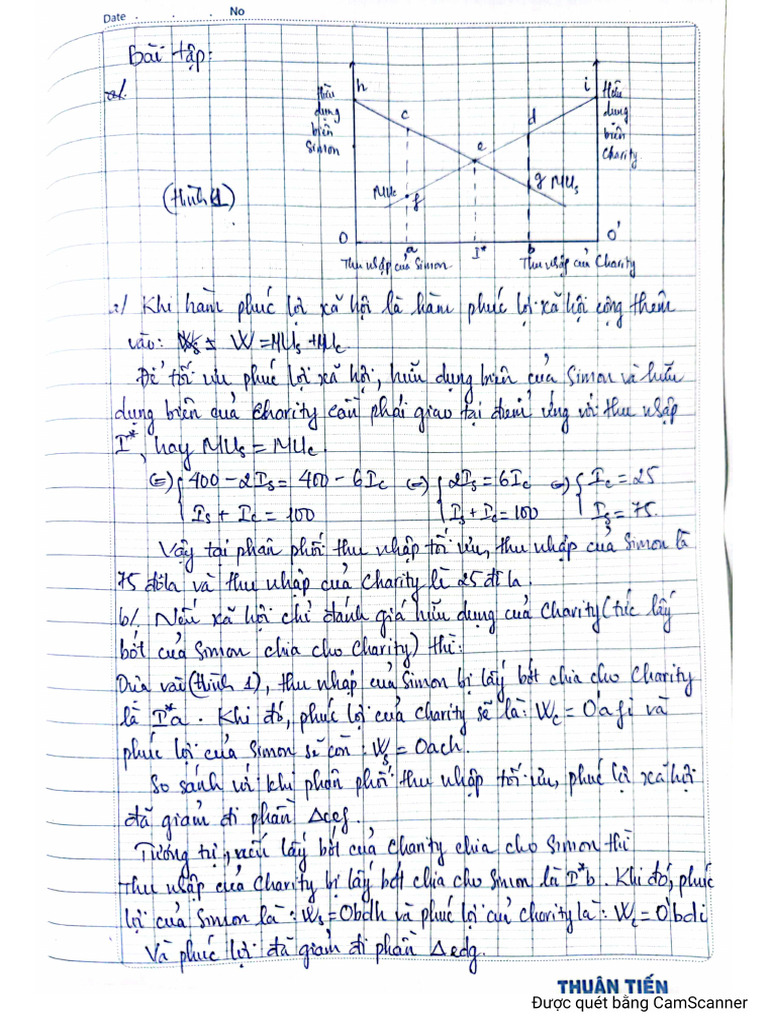 Date . . . . No
Bài tập:
a/.
h
i
Hữu
dụng
biên
Simon
Hữu
dụng
biên
Charity
c
d
e
MUc
f
g MUs
(Hình 1)
O
a
I*
b
O'
Thu nhập của Simon
Thu nhập của Charity
a/ Khi hàm phúc lợi xã hội là hàm phúc lợi xã hội cộng thêm
vào: W = MUs + MUc
Để tối ưu phúc lợi xã hội, hữu dụng biên của Simon và hữu
dụng biên của Charity cần phải giao tại điểm ứng với thu nhập
I*, hay MUs = MUc.
(=) { 400 - 2Is = 400 - 6Ic (=) { 2Is = 6Ic (=) { Ic = 25
Is + Ic = 100 Is + Ic = 100 Is = 75.
Vậy tại phân phối thu nhập tối ưu, thu nhập của Simon là
75 đôla và thu nhập của Charity là 25 đô la.
b/. Nếu xã hội chỉ đánh giá hữu dụng của Charity (tức lấy
bớt của Simon chia cho Charity) thì:
Dựa vào (hình 1), thu nhập của Simon bị lấy bớt chia cho Charity
là I*a. Khi đó, phúc lợi của Charity sẽ là: Wc = O'afi và
phúc lợi của Simon sẽ còn: Ws = Oach.
So sánh với khi phân phối thu nhập tối ưu, phúc lợi xã hội
đã giảm đi phần Δcef.
Tương tự, nếu lấy bớt của Charity chia cho Simon thì
Thu nhập của Charity bị lấy bớt chia cho Simon là I*b. Khi đó, phúc
lợi của Simon là: Ws = Obdh và phúc lợi của Charity là: Wc = O'bdi
Và phúc lợi đã giảm đi phần Δedg.
THUẬN TIẾN
Được quét bằng CamScanner